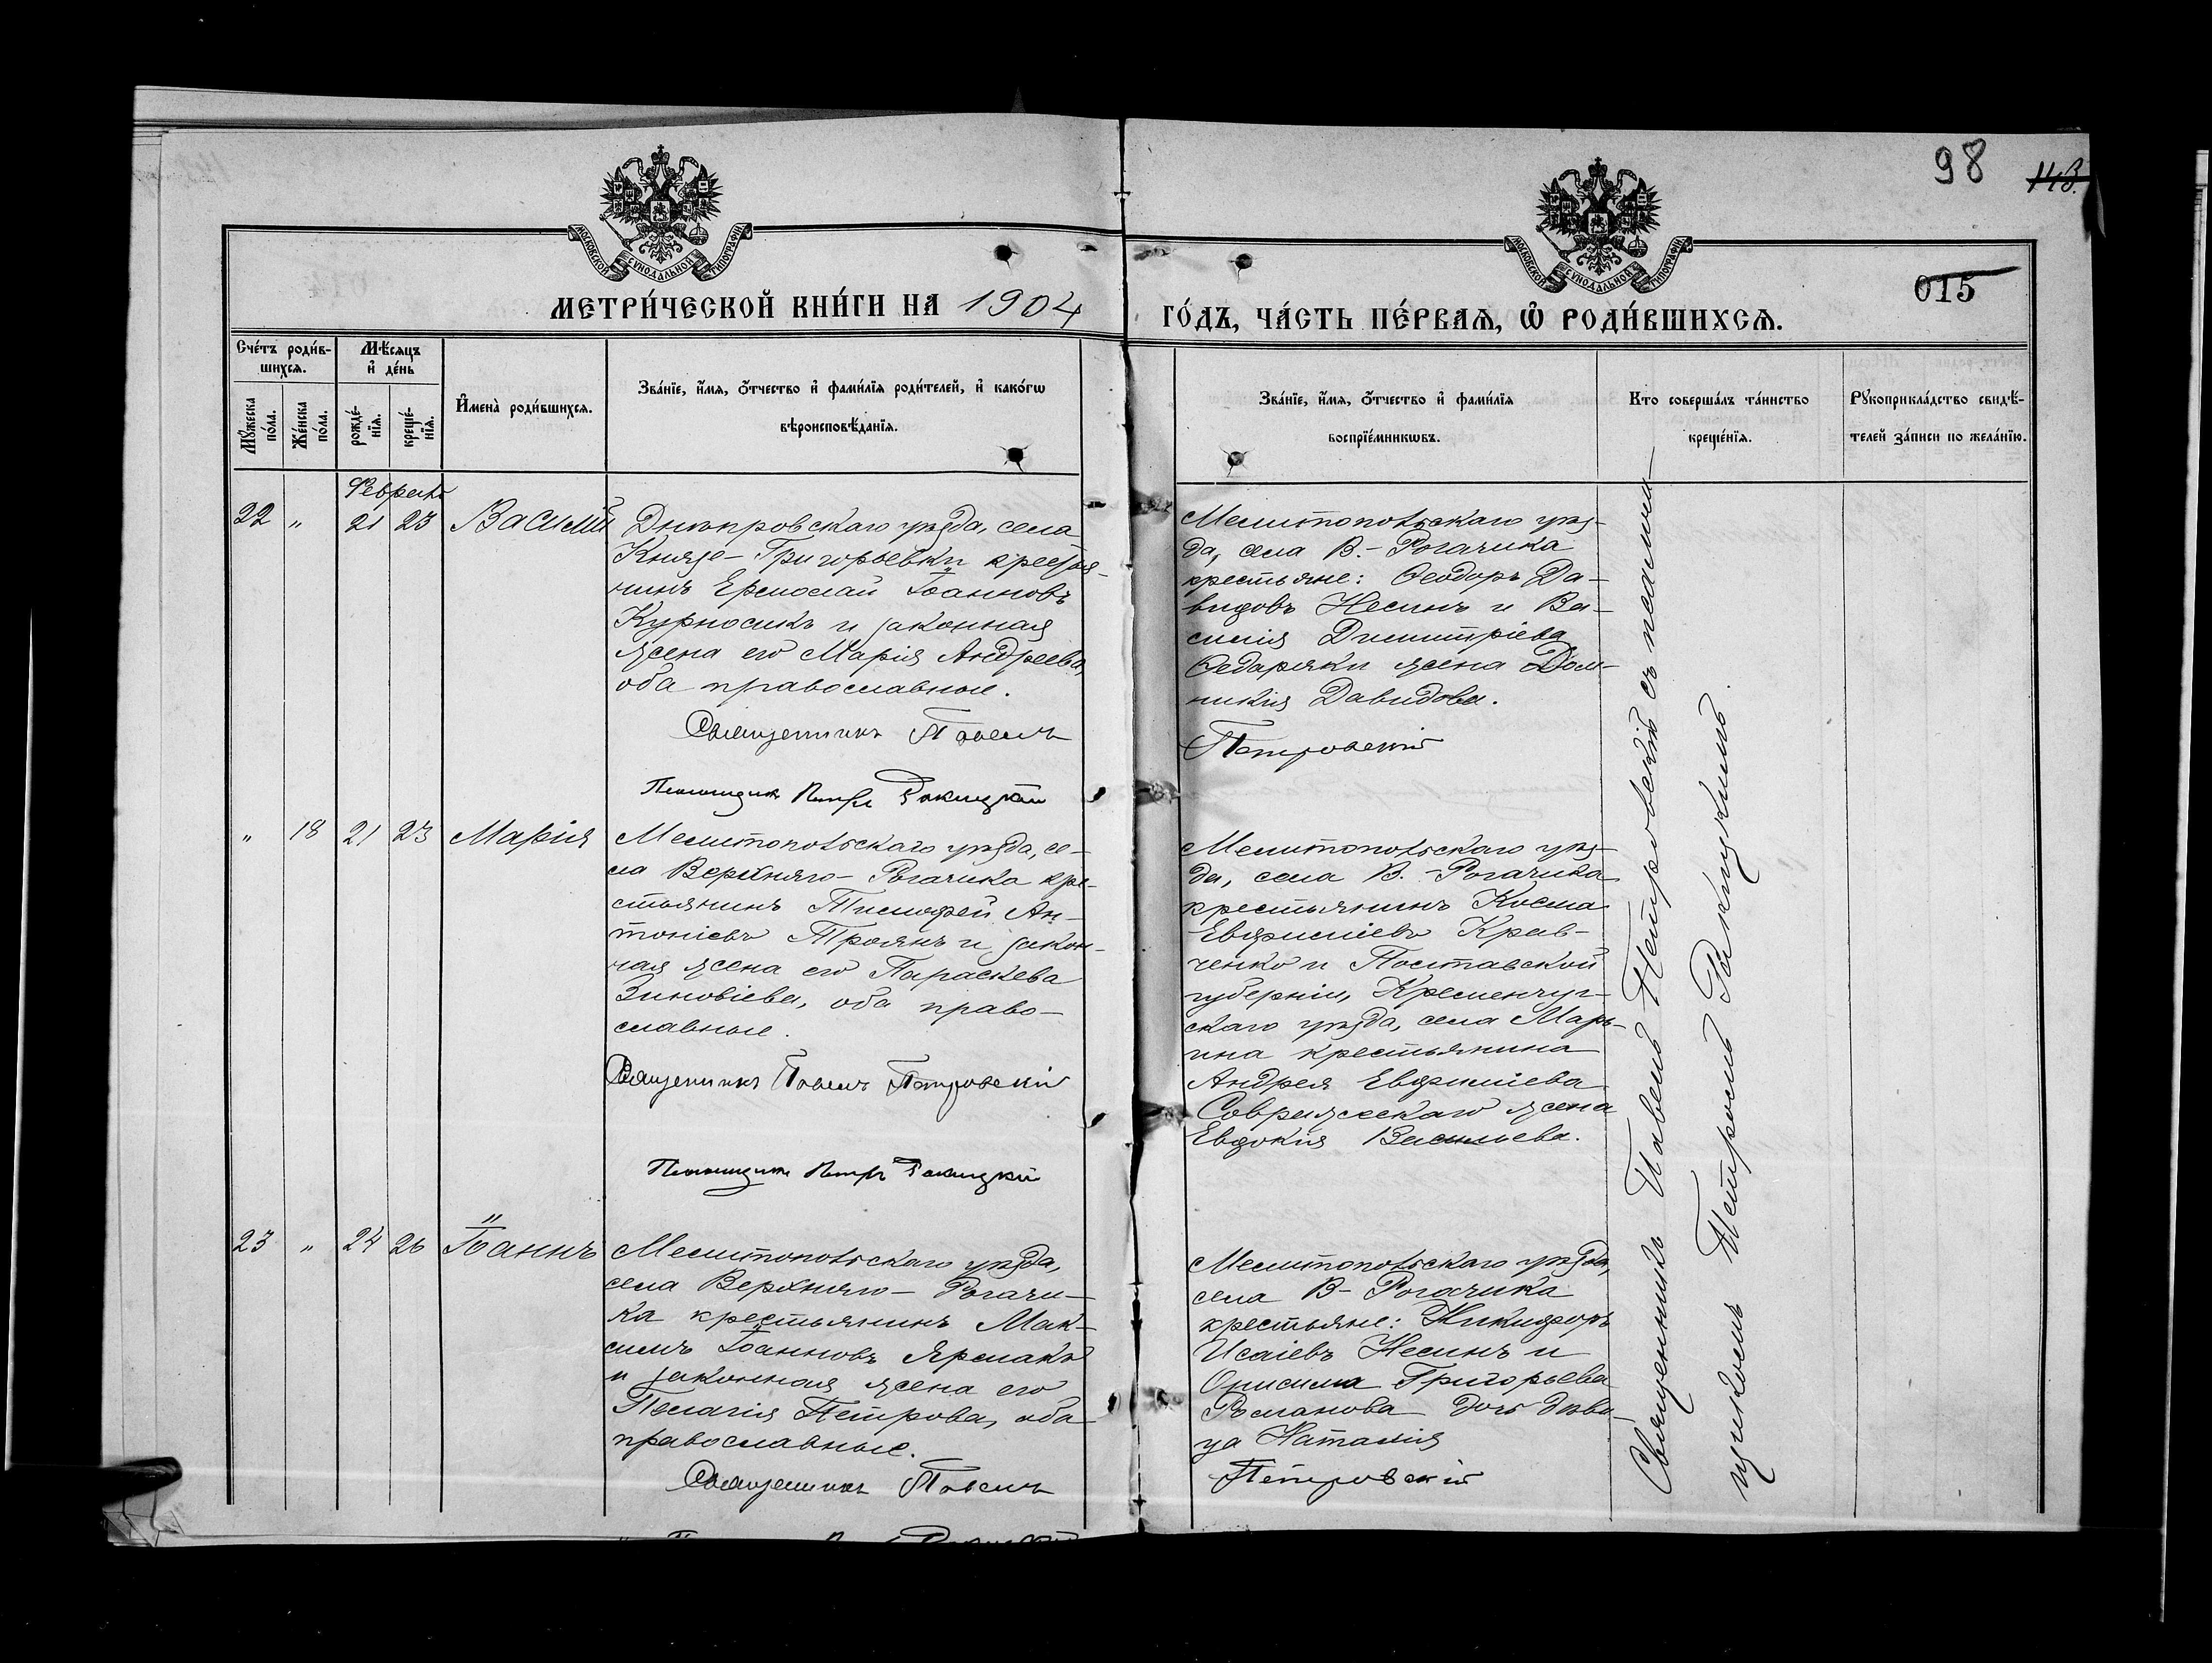 98
143.
МОСКОВСКОЙ СУНОДАЛЬНОЙ ТИПОГРАФІИ
МОСКОВСКОЙ СУНОДАЛЬНОЙ ТИПОГРАФІИ
015
МЕТРИ́ЧЕСКОЙ КНИ́ГИ НА 1904
ГО́ДЪ, ЧА́СТЬ ПЕ́РВАѦ, Ѽ РОДИ́ВШИХСѦ.
Сче́тъ роди́в-
шихсѧ.
Мꙋ́жеска по́ла.
Же́нска по́ла.
Мѣ́сѧцъ
и҆ де́нь
рожде́-
нїѧ.
креще́-
нїѧ.
И҆мена̀ роди́вшихсѧ.
Зва́нїе, и҆́мѧ, ѻ҆́тчество и҆ фами́лїѧ роди́телей, и҆ како́гѡ
вѣроисповѣ́данїѧ.
Зва́нїе, и҆́мѧ, ѻ҆́тчество и҆ фами́лїѧ
воспрїе́мникѡвъ.
Кто̀ соверша́лъ та́инство
креще́нїѧ.
Рꙋкоприкла́дство свидѣ́-
телей за́писи по жела́нїю.
Февраль
22 " 21 23 Василій
Днѣпровскаго уѣзда, села
Князе-Григорьевки крестья-
нинъ Ермолай Іоанновъ
Курносикъ и законная
жена его Марія Андреева,
оба православные.
Священникъ Павелъ
Псаломщикъ Петръ Ракицкій
Мелитопольскаго уѣз-
да, села В.-Рогачика
крестьяне: Ѳеодоръ Да-
видовъ Несинъ и Ва-
силія Димитріева
Ѳедоряки жена Дом-
никія Давидова.
Петровскій
" 18 21 23 Марія
Мелитопольскаго уѣзда, се-
ла Верхняго-Рогачика кре-
стьянинъ Тимофей Ан-
тоніевъ Троянъ и закон-
ная жена его Параскева
Зиновіева, оба право-
славные.
Священникъ Павелъ Петровскій
Псаломщикъ Петръ Ракицкій
Мелитопольскаго уѣз-
да, села В.-Рогачика
крестьянинъ Косма
Евфиміевъ Крав-
ченко и Полтавской
губерніи, Кременчуг-
скаго уѣзда, села Марь-
ина крестьянина
Андрея Евфиміева
жена
Евдокія Васильева.
23 " 24 26 Іоаннъ
Мелитопольскаго уѣзда,
села Верхняго-Рогачи-
ка крестьянинъ Мак-
симъ Іоанновъ Ярмакъ
и законная жена его
Пелагія Петрова, оба
православные.
Священникъ Павелъ
Мелитопольскаго уѣзда,
села В-Рогачика
крестьяне: Никифоръ
Исаіевъ Несинъ и
Онисима Григорьева
Романова дочь дѣви-
ца Наталія
Петровскій
Священникъ Павелъ Петровскій съ псалом-
щикомъ Петромъ Ракицкимъ.